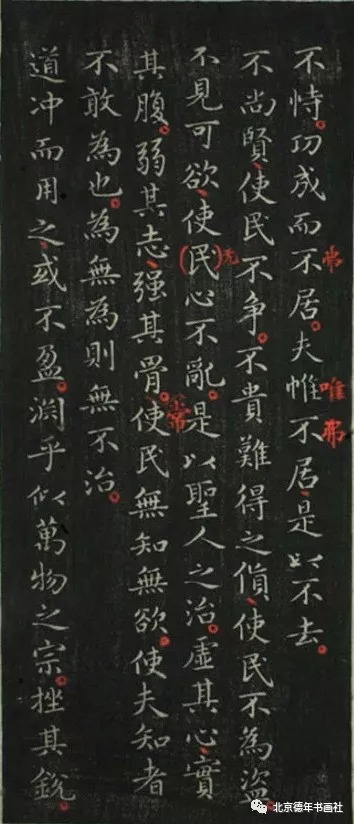 不恃。功成而不居。夫惟不居、是以不去。
弗
唯
弗
不尚賢、使民不争。不貴難得之貨、使民不為盜。
不見可欲、使(民)心不亂。是以聖人之治。虛其心、實
无
其腹。弱其志、强其骨。使民無知無欲。使夫知者
不敢為也。為無為則無不治。
道冲而用之、或不盈。淵乎似萬物之宗。挫其銳。
北京德年书画社